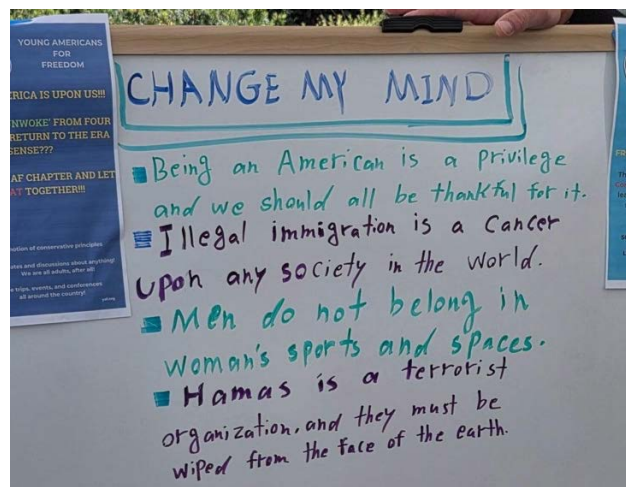 YOUNG AMERICANS
FOR
FREEDOM
RICA IS UPON US!!!
NWOKE' FROM FOUR
RETURN TO THE ERA
SENSE???
AF CHAPTER AND LET
AT TOGETHER!!!
of conservative principles
and discussions about anything!
We are all adults, after all!
trips, events, and conferences
all around the country!
CHANGE MY MIND
Being an American is a privilege
and we should all be thankful for it.
Illegal immigration is a Cancer
upon any society in the world.
Men do not belong in
woman's sports and spaces.
Hamas is a terrorist
organization, and they must be
wiped from the face of the earth.